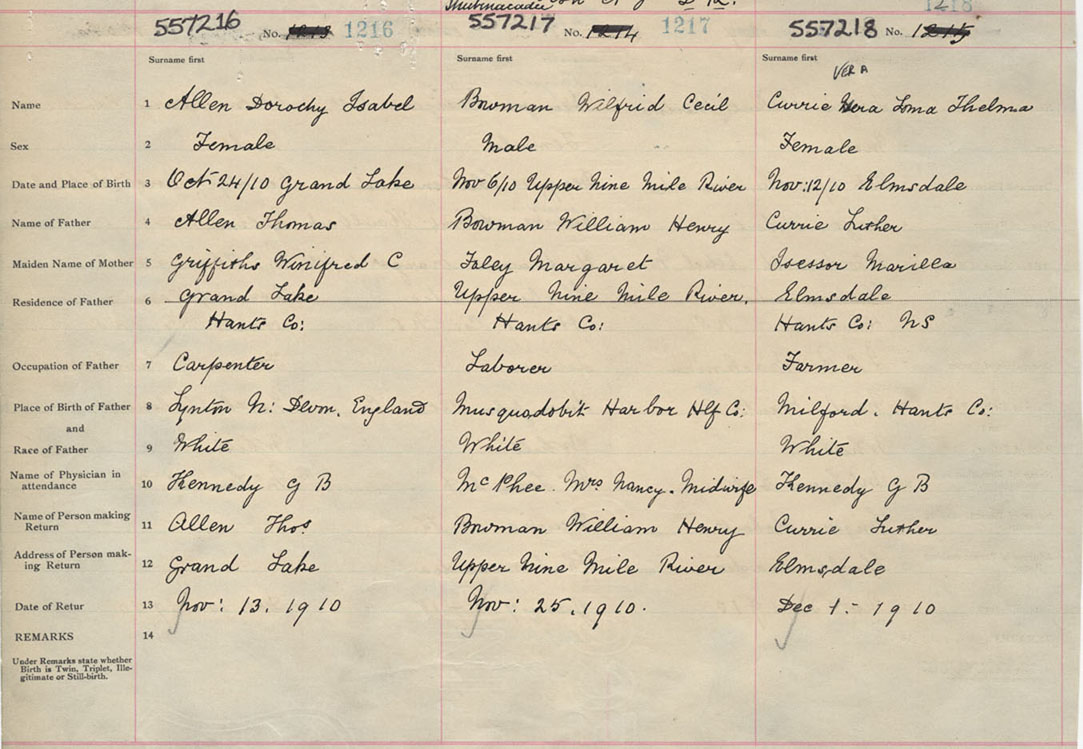 Shubenacadie
557216 No. 1213 1216
557217 No. 1214 1217
1218
557218 No. 1215
Surname first Surname first Surname first
VERA
Name 1 Allen Dorothy Isabel Bowman Wilfrid Cecil Currie Vera Loma Thelma
Sex 2 Female Male Female
Date and Place of Birth 3 Oct 24/10 Grand Lake Nov 6/10 Upper Nine Mile River Nov: 12/10 Elmsdale
Name of Father 4 Allen Thomas Bowman William Henry Currie Luther
Maiden Name of Mother 5 Griffiths Winifred C Foley Margaret Isessor Marilla
Residence of Father 6 Grand Lake Upper Nine Mile River. Elmsdale
Hants Co: Hants Co: Hants Co: NS
Occupation of Father 7 Carpenter Laborer Farmer
Place of Birth of Father 8 Lynton N: Devon. England Musquodobit Harbor Hlf Co: Milford. Hants Co:
and
Race of Father 9 White White White
Name of Physician in
attendance 10 Kennedy G B McPhee. Mrs Nancy. Midwife Kennedy G B
Name of Person making
Return 11 Allen Thos Bowman William Henry Currie Luther
Address of Person mak-
ing Return 12 Grand Lake Upper Nine Mile River Elmsdale
Date of Retur 13 Nov: 13. 1910 Nov: 25. 1910. Dec 1.- 1910
REMARKS 14
Under Remarks state whether
Birth is Twin, Triplet, Ille-
gitimate or Still-birth.